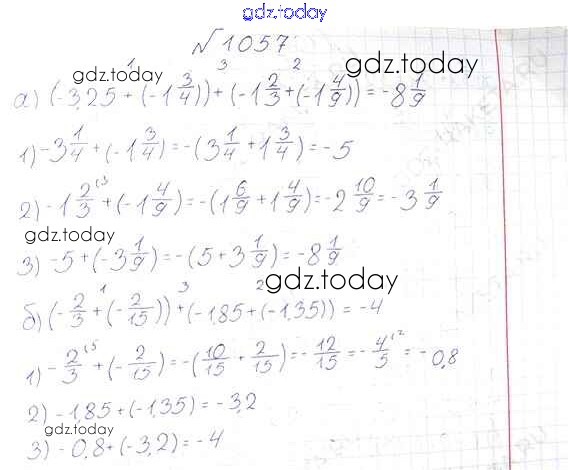 gdz.today
№1057
gdz.today
gdz.today
1 3 2
а) (-3,25 + (-1 3/4)) + (-1 2/3 + (-1 4/9)) = -8 1/9
1) -3 1/4 + (-1 3/4) = -(3 1/4 + 1 3/4) = -5
2) -1 2/3 ⁽³ + (-1 4/9) = -(1 6/9 + 1 4/9) = -2 10/9 = -3 1/9
gdz.today
3) -5 + (-3 1/9) = -(5 + 3 1/9) = -8 1/9
gdz.today
1 3 2
б) (-2/3 + (-2/15)) + (-1,85 + (-1,35)) = -4
1) -2/3 ⁽⁵ + (-2/15) = -(10/15 + 2/15) = -12/15 = -4/5 ⁽² = -0,8
2) -1,85 + (-1,35) = -3,2
gdz.today
3) -0,8 + (-3,2) = -4